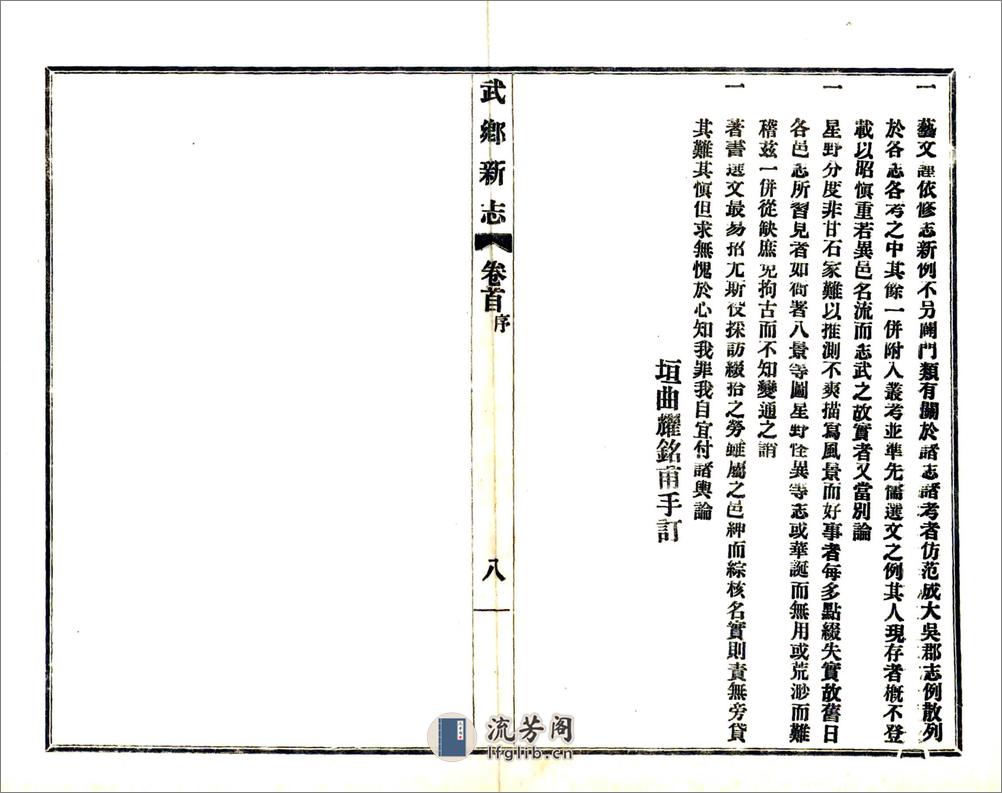 一 藝文謹依修志新例不另闢門類有關於諸志諸考者仿范成大吳郡志例散列
於各志各考之中其餘一併附入叢考並準先儒選文之例其人現存者概不登
載以昭慎重若異邑名流而志武之故實者又當別論
一 星野分度非甘石家難以推測不爽描寫風景而好事者每多點綴失實故舊日
各邑志所習見者如衙署八景等圖星野怪異等志或華誕而無用或荒渺而難
稽茲一併從缺庶免拘古而不知變通之誚
一 著書選文最易招尤斯役採訪綴拾之勞雖屬之邑紳而綜核名實則責無旁貸
其難其慎但求無愧於心知我罪我自宜付諸輿論
垣曲耀銘甫手訂
武鄉新志 卷首 序
八
流芳阁
lfglib.cn